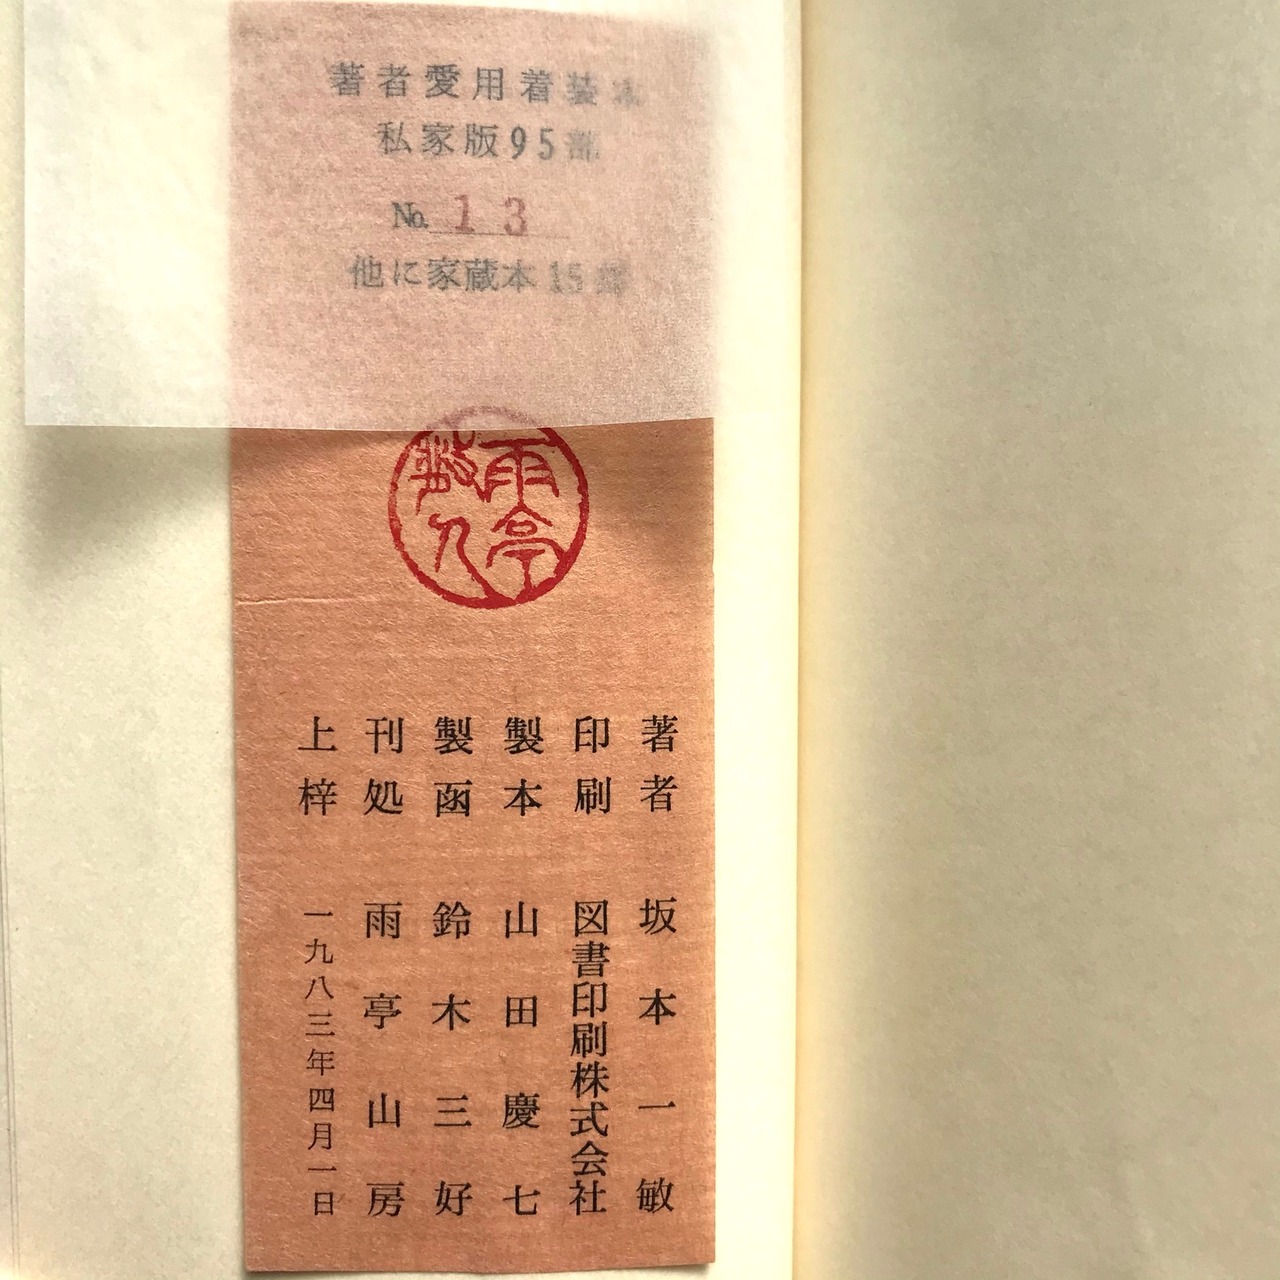 著者愛用着装本
私家版95部
No. 13
他に家蔵本15部
雨亭
人
著者 坂本一敏
印刷 図書印刷株式会社
製本 山田慶七
製函 鈴木三好
刊処 雨亭山房
上梓 一九八三年四月一日